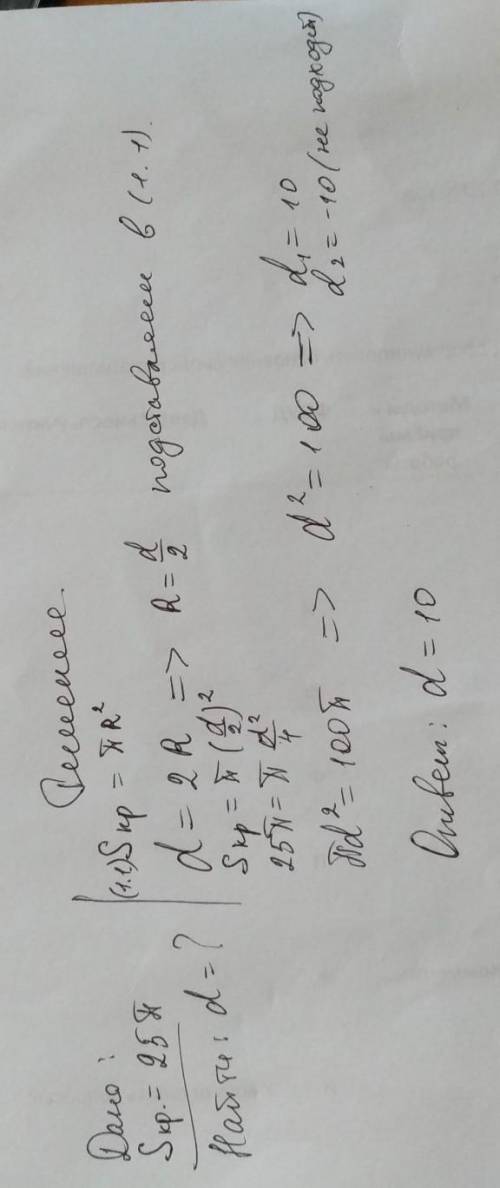 Дано:
Sкр. = 25π
Найти: d = ?
Решение.
(1.1) Sкр = πR²
d = 2R => R = d/2 подставляем в (1.1).
Sкр = π(d/2)²
25π = π d²/4
πd² = 100π => d² = 100 => d₁ = 10
d₂ = -10 (не подходит)
Ответ: d = 10